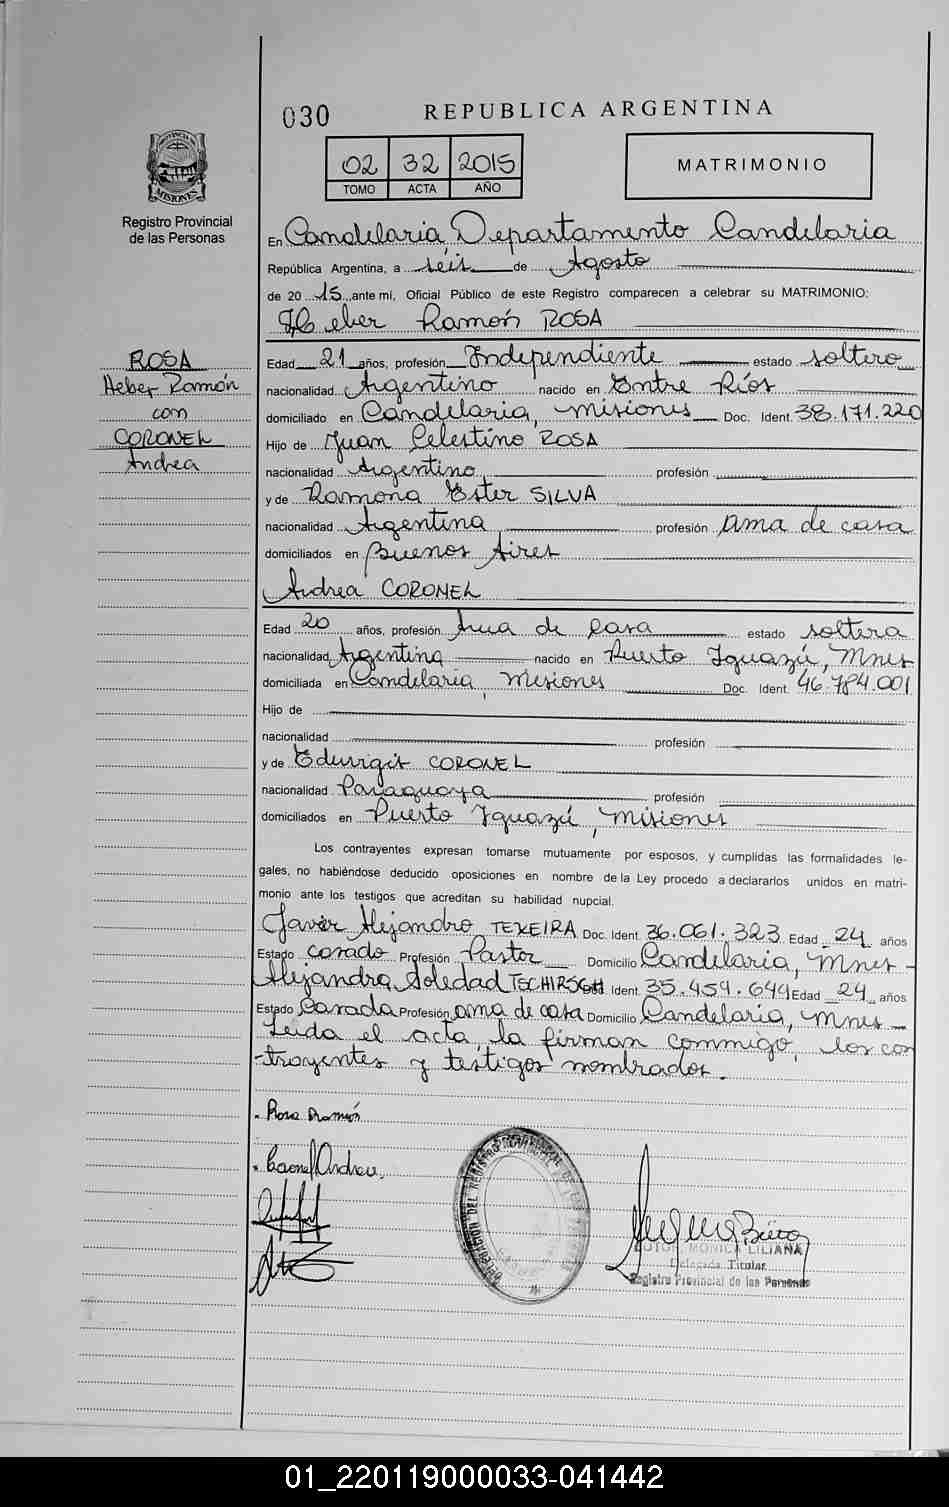 030
REPUBLICA ARGENTINA
02 32 2015
TOMO ACTA AÑO
MATRIMONIO
PROVINCIA DE
MISIONES
Registro Provincial
de las Personas
En Candelaria, Departamento Candelaria
República Argentina, a seis de Agosto
de 20 15 ante mi, Oficial Público de este Registro comparecen a celebrar su MATRIMONIO:
Heber Ramón ROSA
ROSA
Heber Ramón
con
CORONEL
Andrea
Edad 21 años, profesión Independiente estado soltero
nacionalidad Argentino nacido en Entre Ríos
domiciliado en Candelaria, Misiones Doc. Ident. 38.171.220
Hijo de Juan Celestino ROSA
nacionalidad Argentino profesión
y de Ramona Ester SILVA
nacionalidad Argentina profesión ama de casa
domiciliados en Buenos Aires
Andrea CORONEL
Edad 20 años, profesión Ama de Casa estado soltera
nacionalidad Argentina nacido en Puerto Iguazú, Mnes
domiciliada en Candelaria, Misiones Doc. Ident. 46.784.001
Hijo de
nacionalidad profesión
y de Eduvigis CORONEL
nacionalidad Paraguaya profesión
domiciliados en Puerto Iguazú, Misiones
Los contrayentes expresan tomarse mutuamente por esposos, y cumplidas las formalidades le-
gales, no habiéndose deducido oposiciones en nombre de la Ley procedo a declararlos unidos en matri-
monio ante los testigos que acreditan su habilidad nupcial.
Javier Alejandro TEXEIRA Doc. Ident. 36.061.323 Edad 24 años
Estado casado Profesión Pastor Domicilio Candelaria, Mnes -
Alejandra Soledad Ident. 35.459.644 Edad 24 años
Estado Casada Profesión ama de casa Domicilio Candelaria, Mnes
Leida el acta, la firman conmigo, los con
-trayentes y testigos nombrados.
Rosa Ramón
Coronel Andrea
MONICA LILIANA
Delegada Titular
Registro Provincial de las Personas
01_220119000033-041442